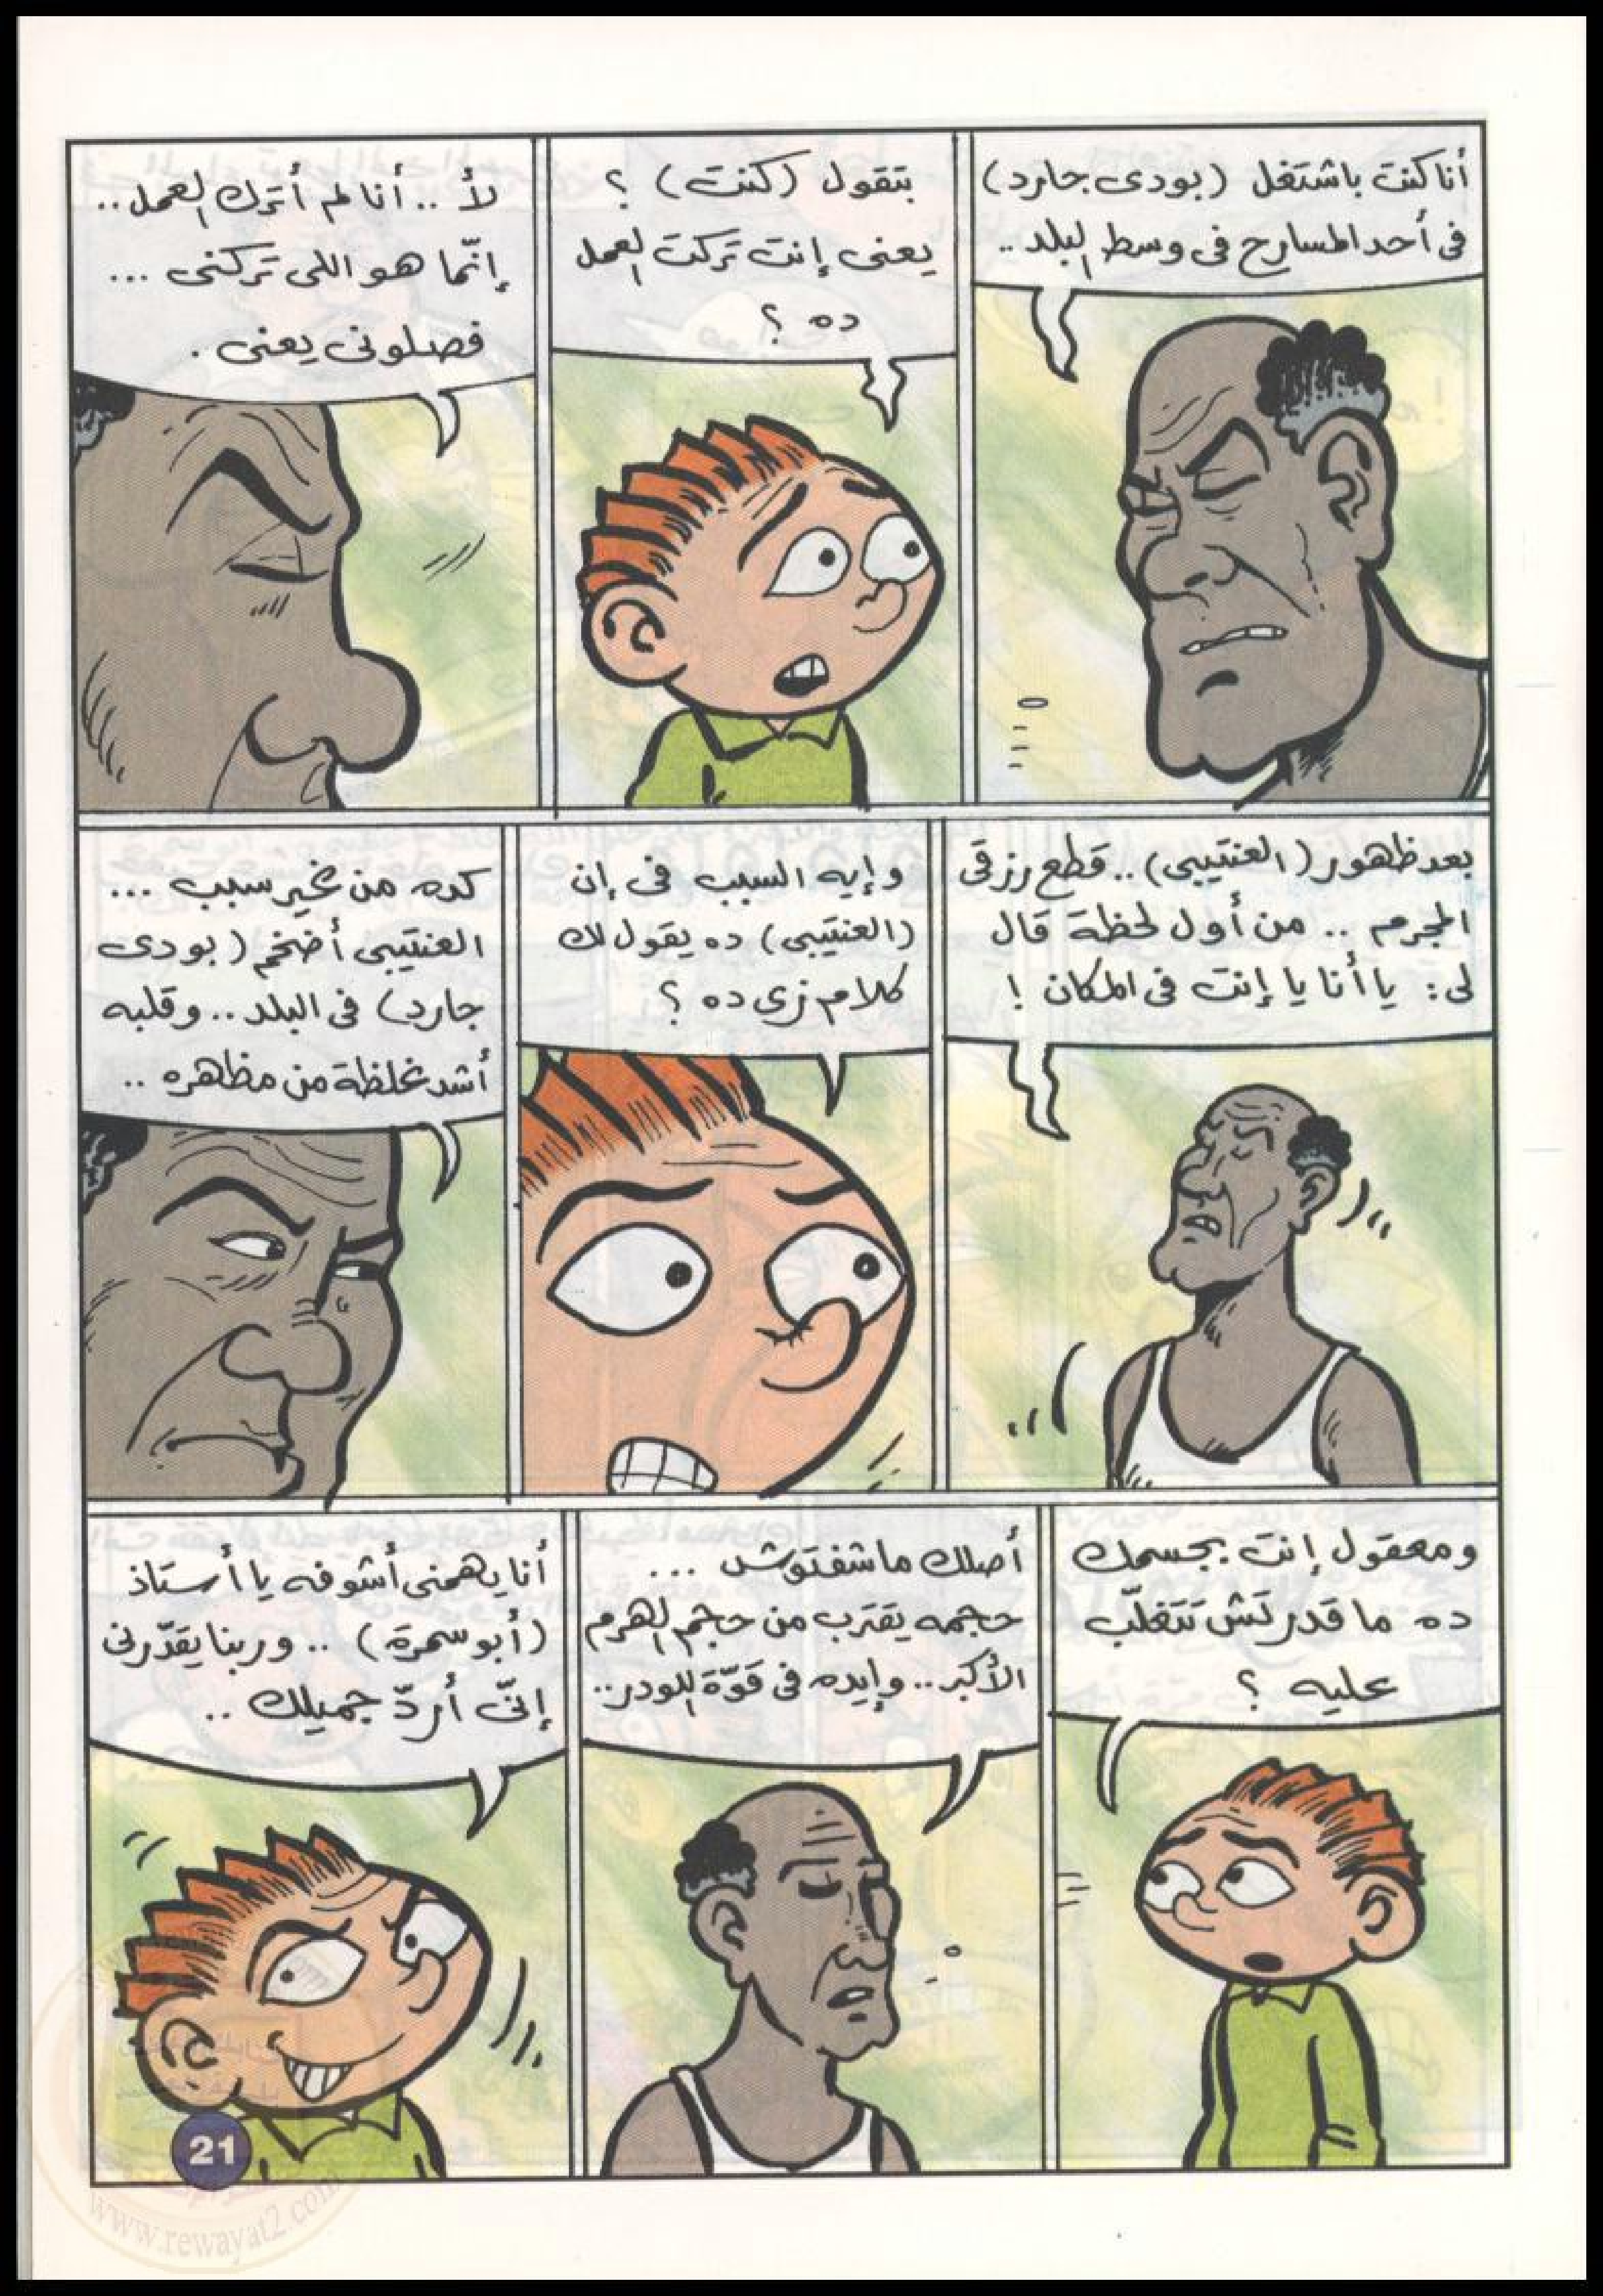 أنا كنت باشتغل (بودى جارد)
فى أحد المسارح فى وسط البلد ..
بتقول (كنت) ؟
يعنى إنت تركت العمل
ده ؟
لأ .. أنا لم أترك العمل ..
إنّما هو اللى تركنى ...
فصلونى يعنى .
بعد ظهور (العنتيبى) .. قطع رزقى
المجرم .. من أول لحظة قال
لى : يا أنا يا إنت فى المكان !
وإيه السبب فى إن
(العنتيبى) ده يقول لك
كلام زى ده ؟
كده من غير سبب ...
العنتيبى أضخم (بودى
جارد) فى البلد .. وقلبه
أشد غلظة من مظهره ..
ومعقول إنت بجسمك
ده ما قدرتش تتغلّب
عليه ؟
أصلك ماشفتوش ...
حجمه يقترب من حجم الهرم
الأكبر .. وإيده فى قوّة اللودر ..
أنا يهمنى أشوفه يا أستاذ
(أبو سمرة) .. وربنا يقدّرنى
إنّى أردّ جميلك ..
21
www.rewayat2.com